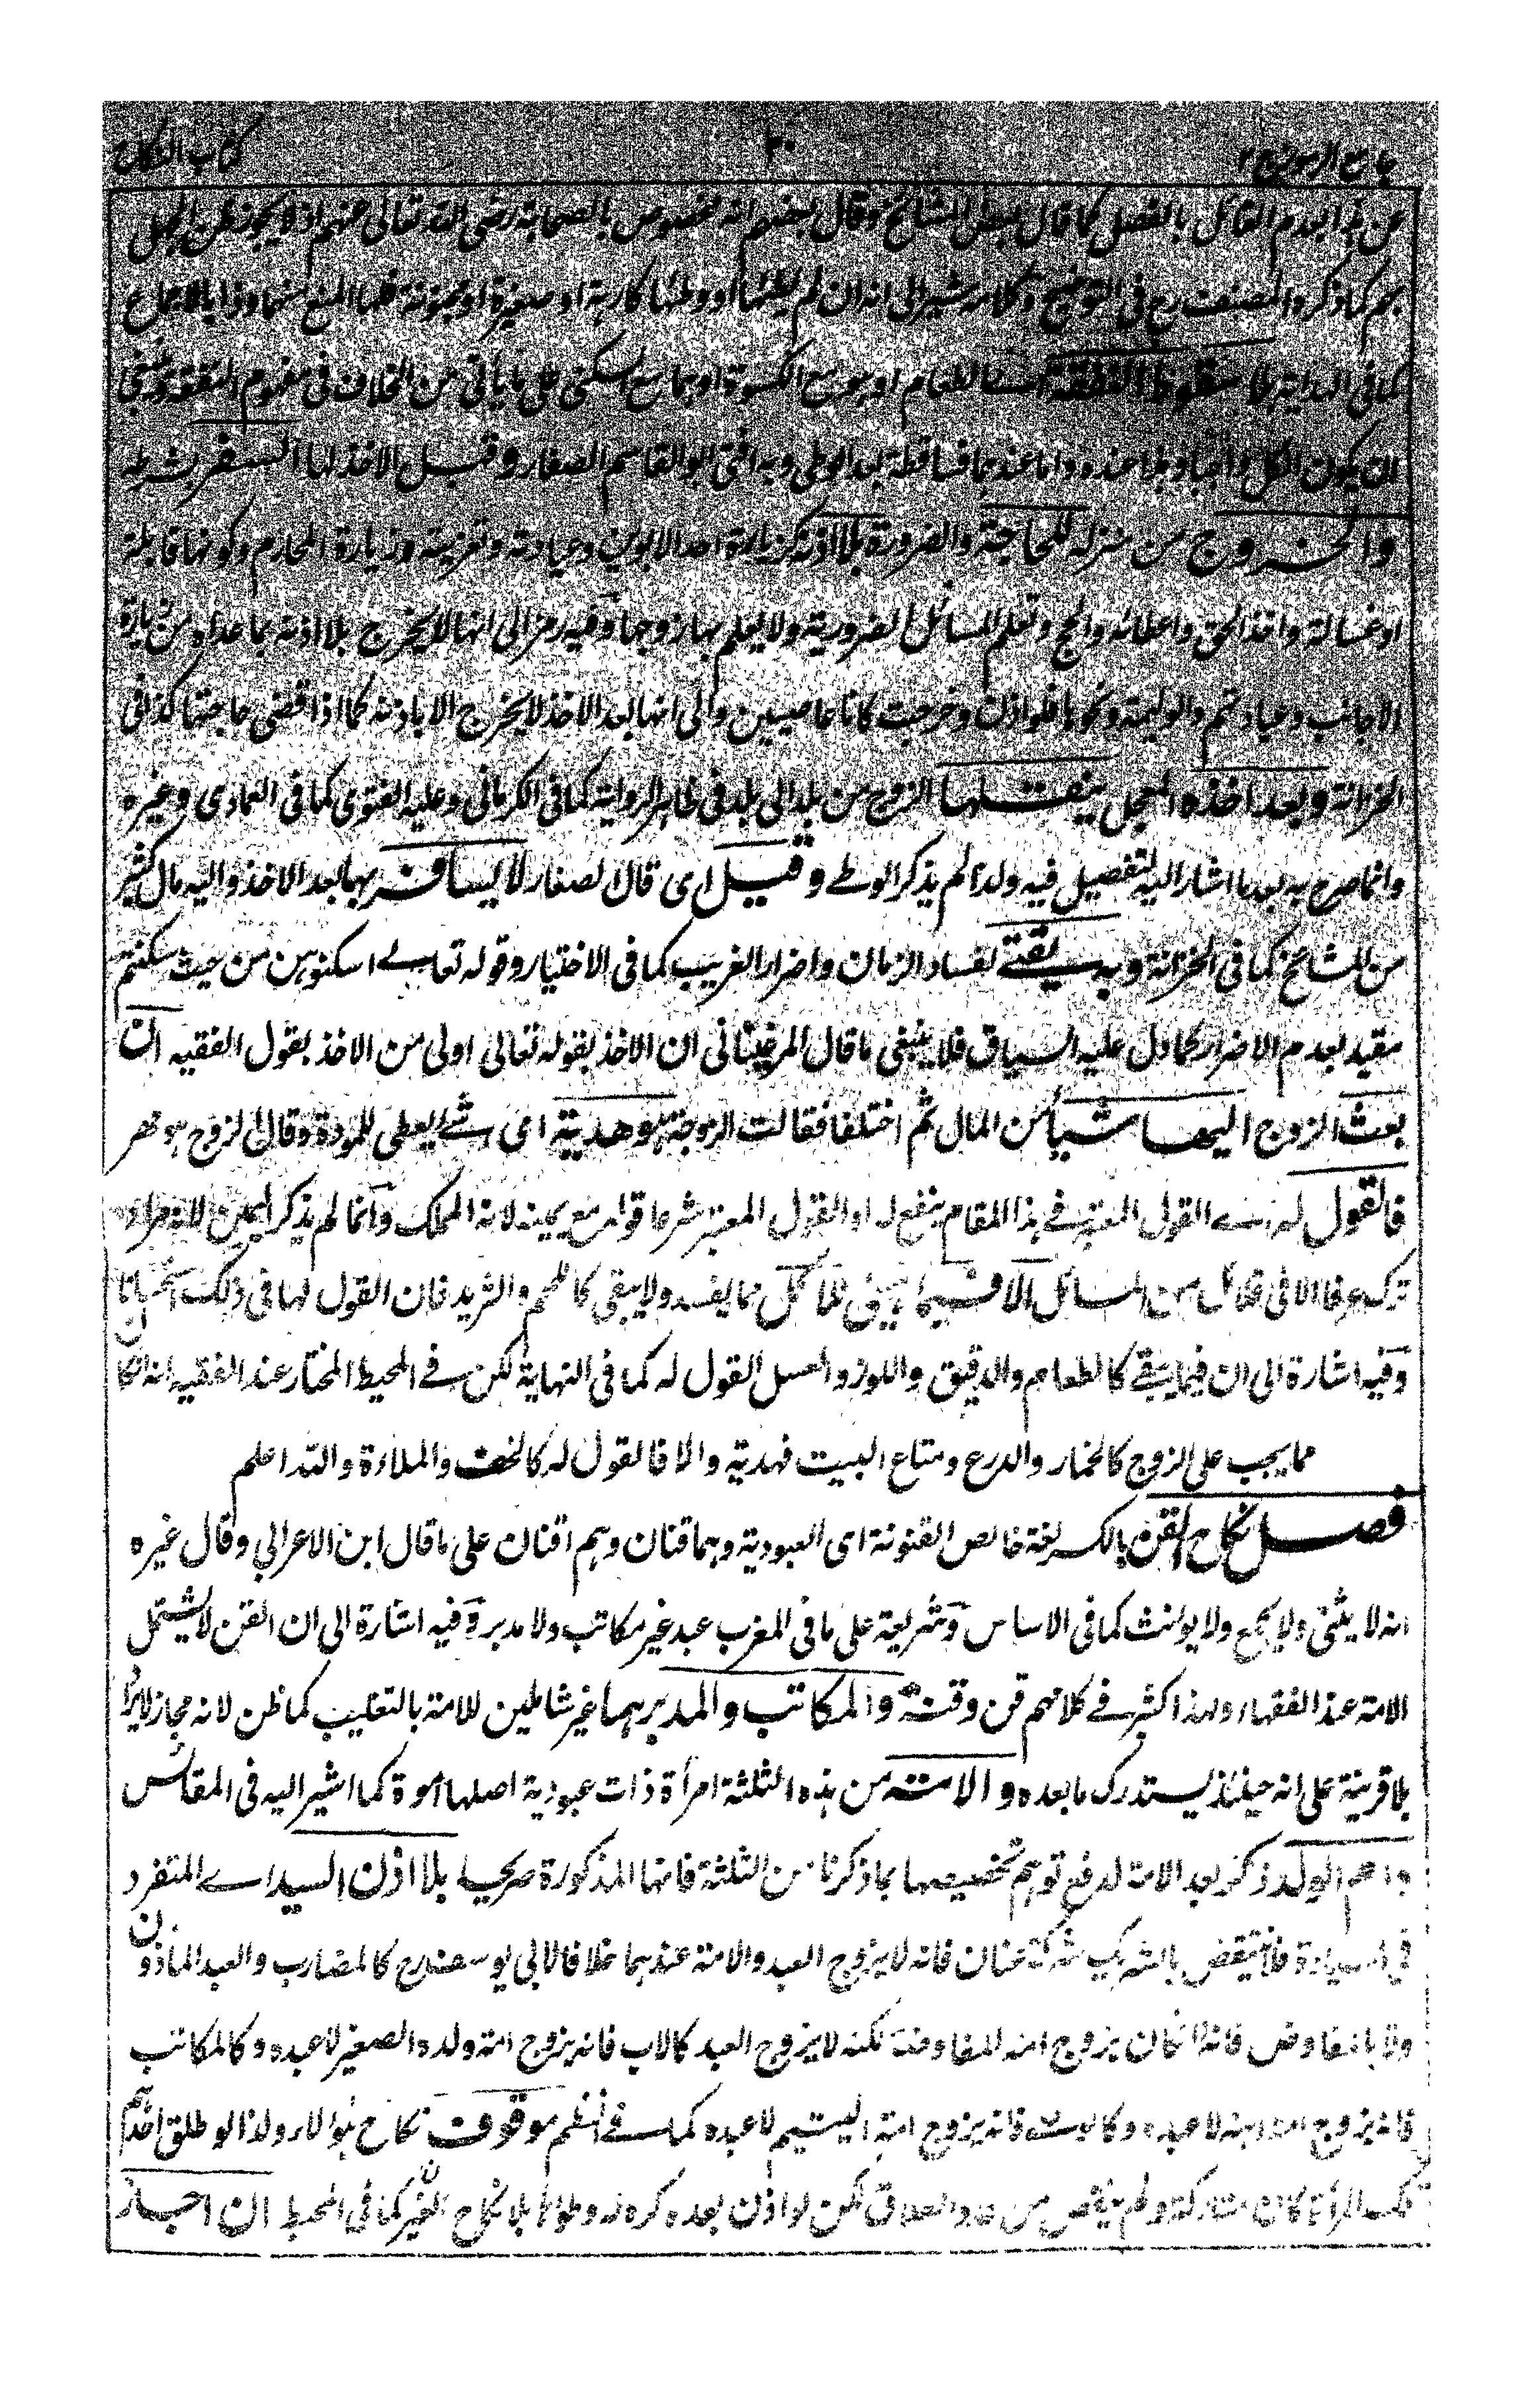 جامع الرموز ج ٢ ٣٠ كتاب النكاح
عن بعدم القائل بالفصل كما قال بعض المشائخ وقال بعضهم انه مخصوص بالصحابة رضى الله تعالى عنهم اذ لا يجوز ظن الجهل
بهم كما ذكره المصنف رح فى التوضيح وكلامه مشير الى انه ان لم يطئها او وطئها كارهة او صغيرة او مجنونة فلها المنع منهما وذا بالاجماع
كما فى الهداية بلا سقوط النفقة اى الطعام او هو مع الكسوة او هما مع السكنى على ما يأتى من الخلاف فى مفهوم النفقة وينبغى
ان يكون الكل واجبا وهذا عنده واما عندهما فساقطة بعد الوطى وبه افتى ابو القاسم الصفار وقبل الاخذ لها السفر بشرطه
والخروج من منزله للحاجة والضرورة بلا اذنه كزيارة احد الابوين وعيادته وتعزيته وزيارة المحارم وكونها قابلة
او غسالة واخذ الحق واعطائه والحج وتعلم المسائل الضرورية ولا يعلم بها زوجها وفيه رمز الى انها لا يخرج بلا اذنه بما عداه من زيارة
الاجانب وعيادتهم والوليمة ونحوها فلو اذن وخرجت كانا عاصيين والى انها بعد الاخذ لا يخرج الا باذنه كما اذا قضى حاجتها كذا فى
الخزانة وبعد اخذه المعجل ينقلها الزوج من بلد الى بلد فى ظاهر الرواية كما فى الكرمانى وعليه الفتوى كما فى العمادى وغيره
وانما صرح به بعد ما اشار اليه لتفصيل فيه ولذا لم يذكر الوطے وقيل اى قال الصفار لا يسافر بها بعد الاخذ واليه مال كثير
من المشائخ كما فى الخزانة وبه يفتے لفساد الزمان واضرار الغريب كما فى الاختيار وقوله تعالے اسكنوهن من حيث سكنتم
مقيد بعدم الاضرار كما دل عليه السياق فلا ينبغى ما قال المرغينانى ان الاخذ بقوله تعالى اولى من الاخذ بقول الفقيه ان
بعث الزوج اليها شيأ من المال ثم اختلفا فقالت الزوجة هو هدية اى شے يعطى للمودة وقال الزوج هو مهر
فالقول له اے القول المعتبر فے هذا المقام ينفع له او القول المعتبر شرعا قوله مع يمينه لانه المملك وانما لم يذكر اليمين لانه مراد
ترك عرفا الا فى قلائل من المسائل الا فيما هيئ للاكل مما يفسد ولا يبقى كاللحم والثريد فان القول لها فى ذلك استحسانا
وفيه اشارة الى ان فيما يبقے كالطعام والدقيق واللوز والعسل القول له كما فى النهاية لكن فے المحيط المختار عند الفقيه انه ان كان
مما يجب على الزوج كالخمار والدرع ومتاع البيت فهدية والا فالقول له كالخف والملاءة والله اعلم
فصل نكاح القن بالكسر لغة خالص القنونة اى العبودية وهما قنان وهم اقنان على ما قال ابن الاعرابي وقال غيره
انه لا يثنى ولا يجمع ولا يؤنث كما فى الاساس وشريعة على ما فى المغرب عبد غير مكاتب ولا مدبر وفيه اشارة الى ان القن لا يشتمل
الامة عند الفقهاء ولهذا كثير فے كلامهم قن وقنة والمكاتب والمدبر هما غير شاملين للامة بالتغليب كما ظن لانه مجاز لا يراد
بلا قرينة على انه حينئذ يستدرك ما بعده والامة من هذه الثلثة امرأة ذات عبودية اصلها اموة كما اشير اليه فى المقائس
وام الولد ذكر بعد الامة لدفع توهم تخصيصها بما ذكرنا من الثلثة فانها المذكورة صريحا بلا اذن السيد اے المتفرد
فى السيادة فلا ينتقض بالشريك شركة عنان فانه لا يزوج العبد والامة عندهما خلافا لابى يوسف رح كالمضارب والعبد الماذون
ولا بالمفاوض فانه ان كان يزوج امة المفاوضة لكنه لا يزوج العبد كالاب فانه يزوج امة ولده الصغير لا عبده وكالمكاتب
فانه يزوج امة ابنه لا عبده وكالوصے فانه يزوج امة اليتيم لا عبده كما فے النظم موقوف نكاح هؤلاء ولذا لو طلق احدهم
تلك المرأة كان متاركة ولم ينقص من عدد الطلاق لكن لو اذن بعده كره له وطؤها بلا نكاح الغير كما فى المحيط ان اجاز